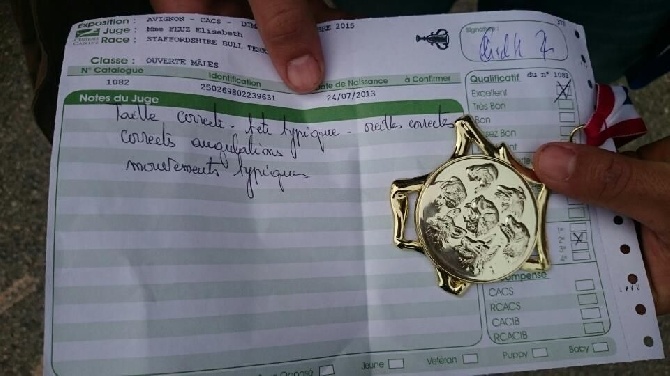 Exposition : AVIGNON - CACS - 2015
Juge : Mme FEUZ Elisabeth
Race : STAFFORDSHIRE BULL
Signature :
Classe : OUVERTE MÂLES
N° Catalogue Identification Date de Naissance à Confirmer
1082 250269802239631 24/07/2013
Qualificatif du n° 1082
Excellent
Très Bon
Bon
Notes du Juge
taille correcte. tête typique. oreilles correctes
corrects angulations
mouvements typiques
CACS
RCACS
CACIB
RCACIB
Jeune Vétéran Puppy Baby